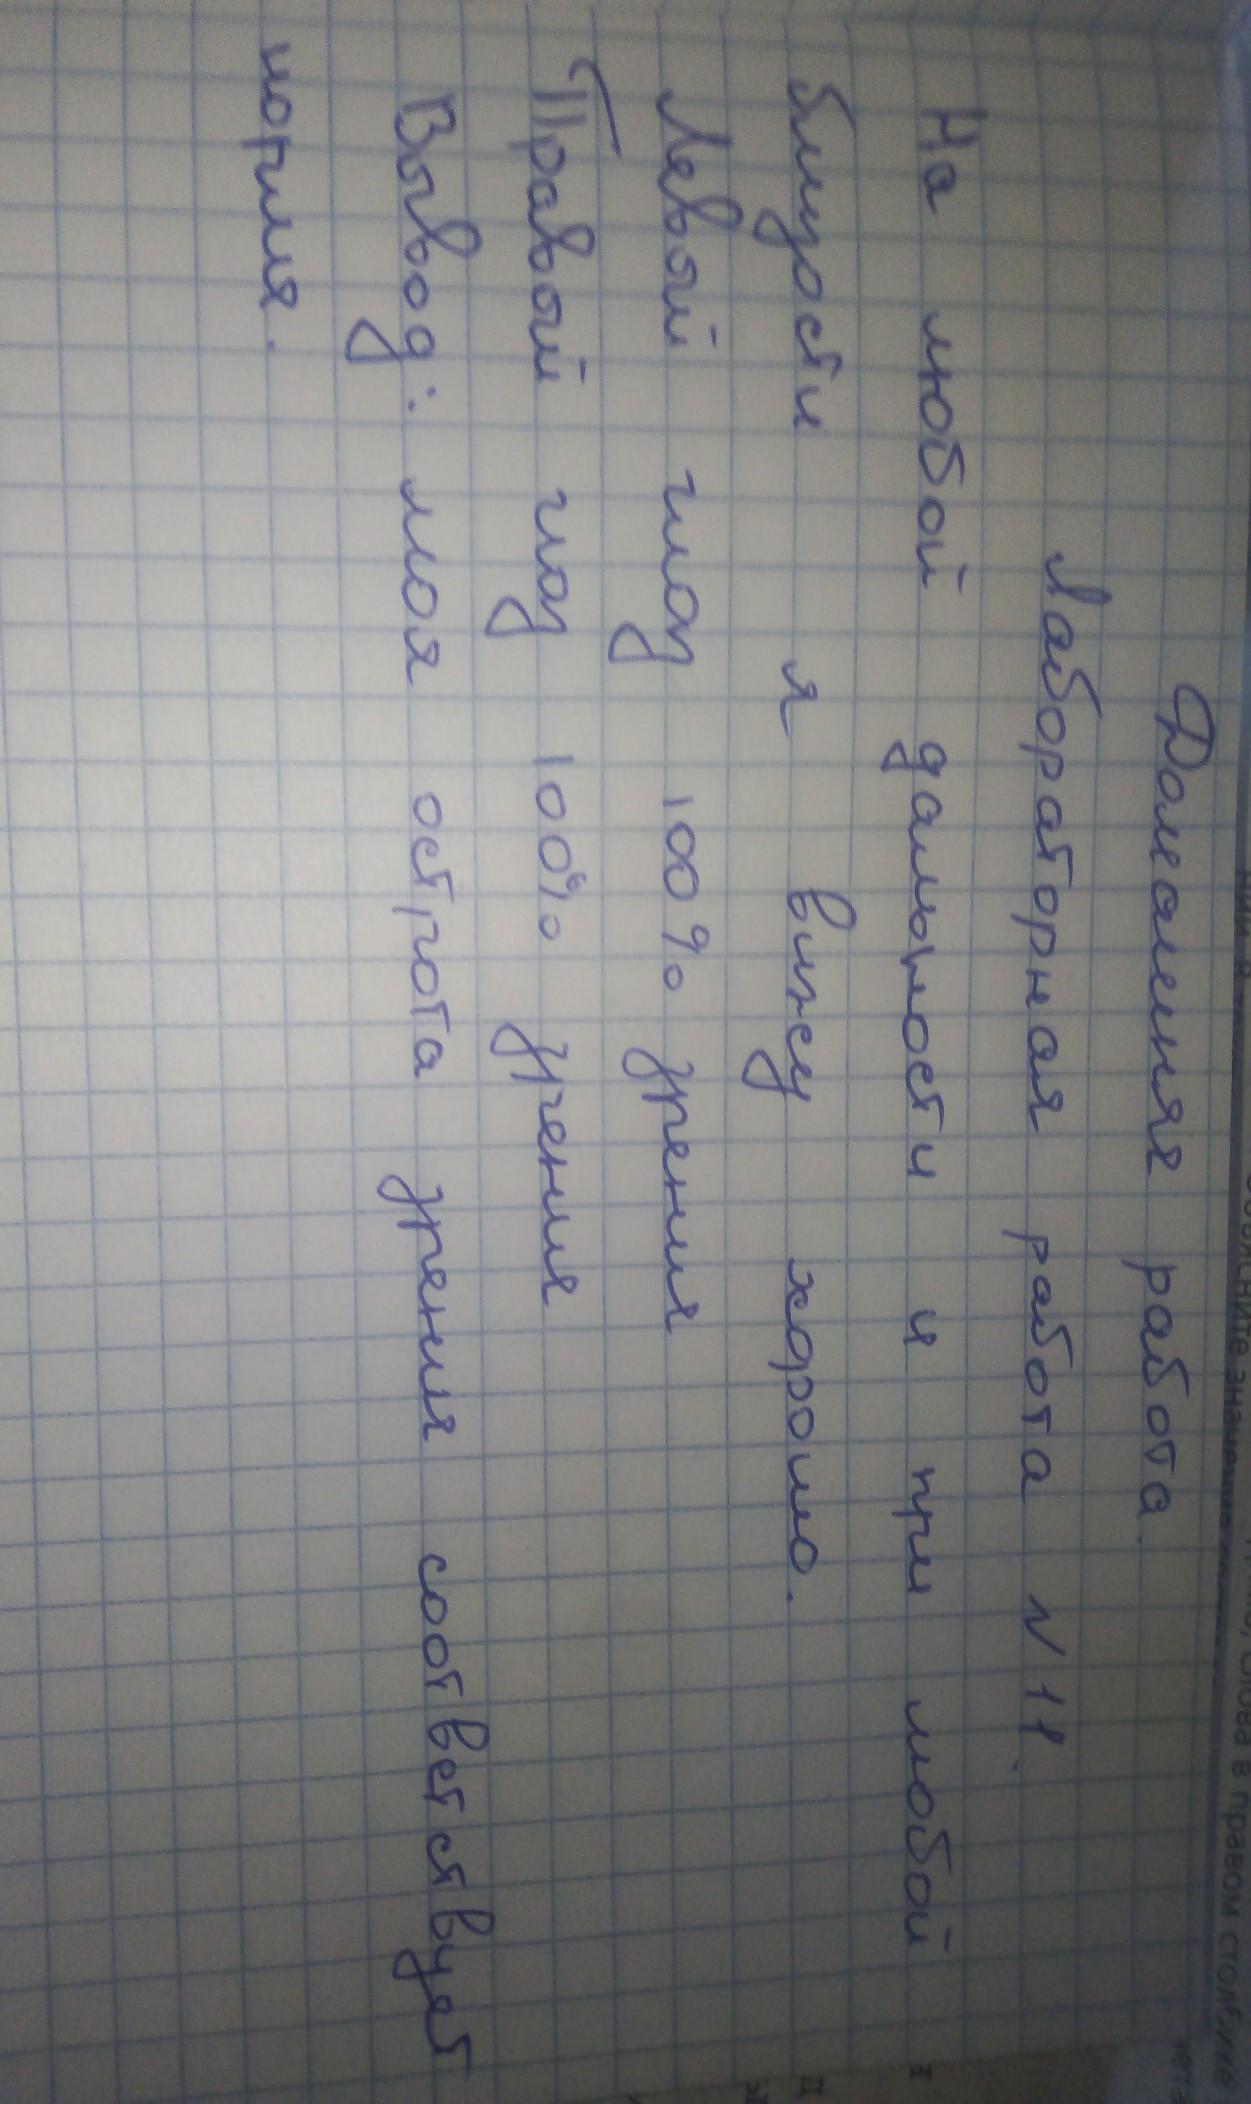 Домашняя работа.
Лабораторная работа N 11.
На любой дальности и при любой
близости я вижу хорошо.
Левый глаз 100% зрения
Правый глаз 100% зрения
Вывод: моя острота зрения соответствует
норме.